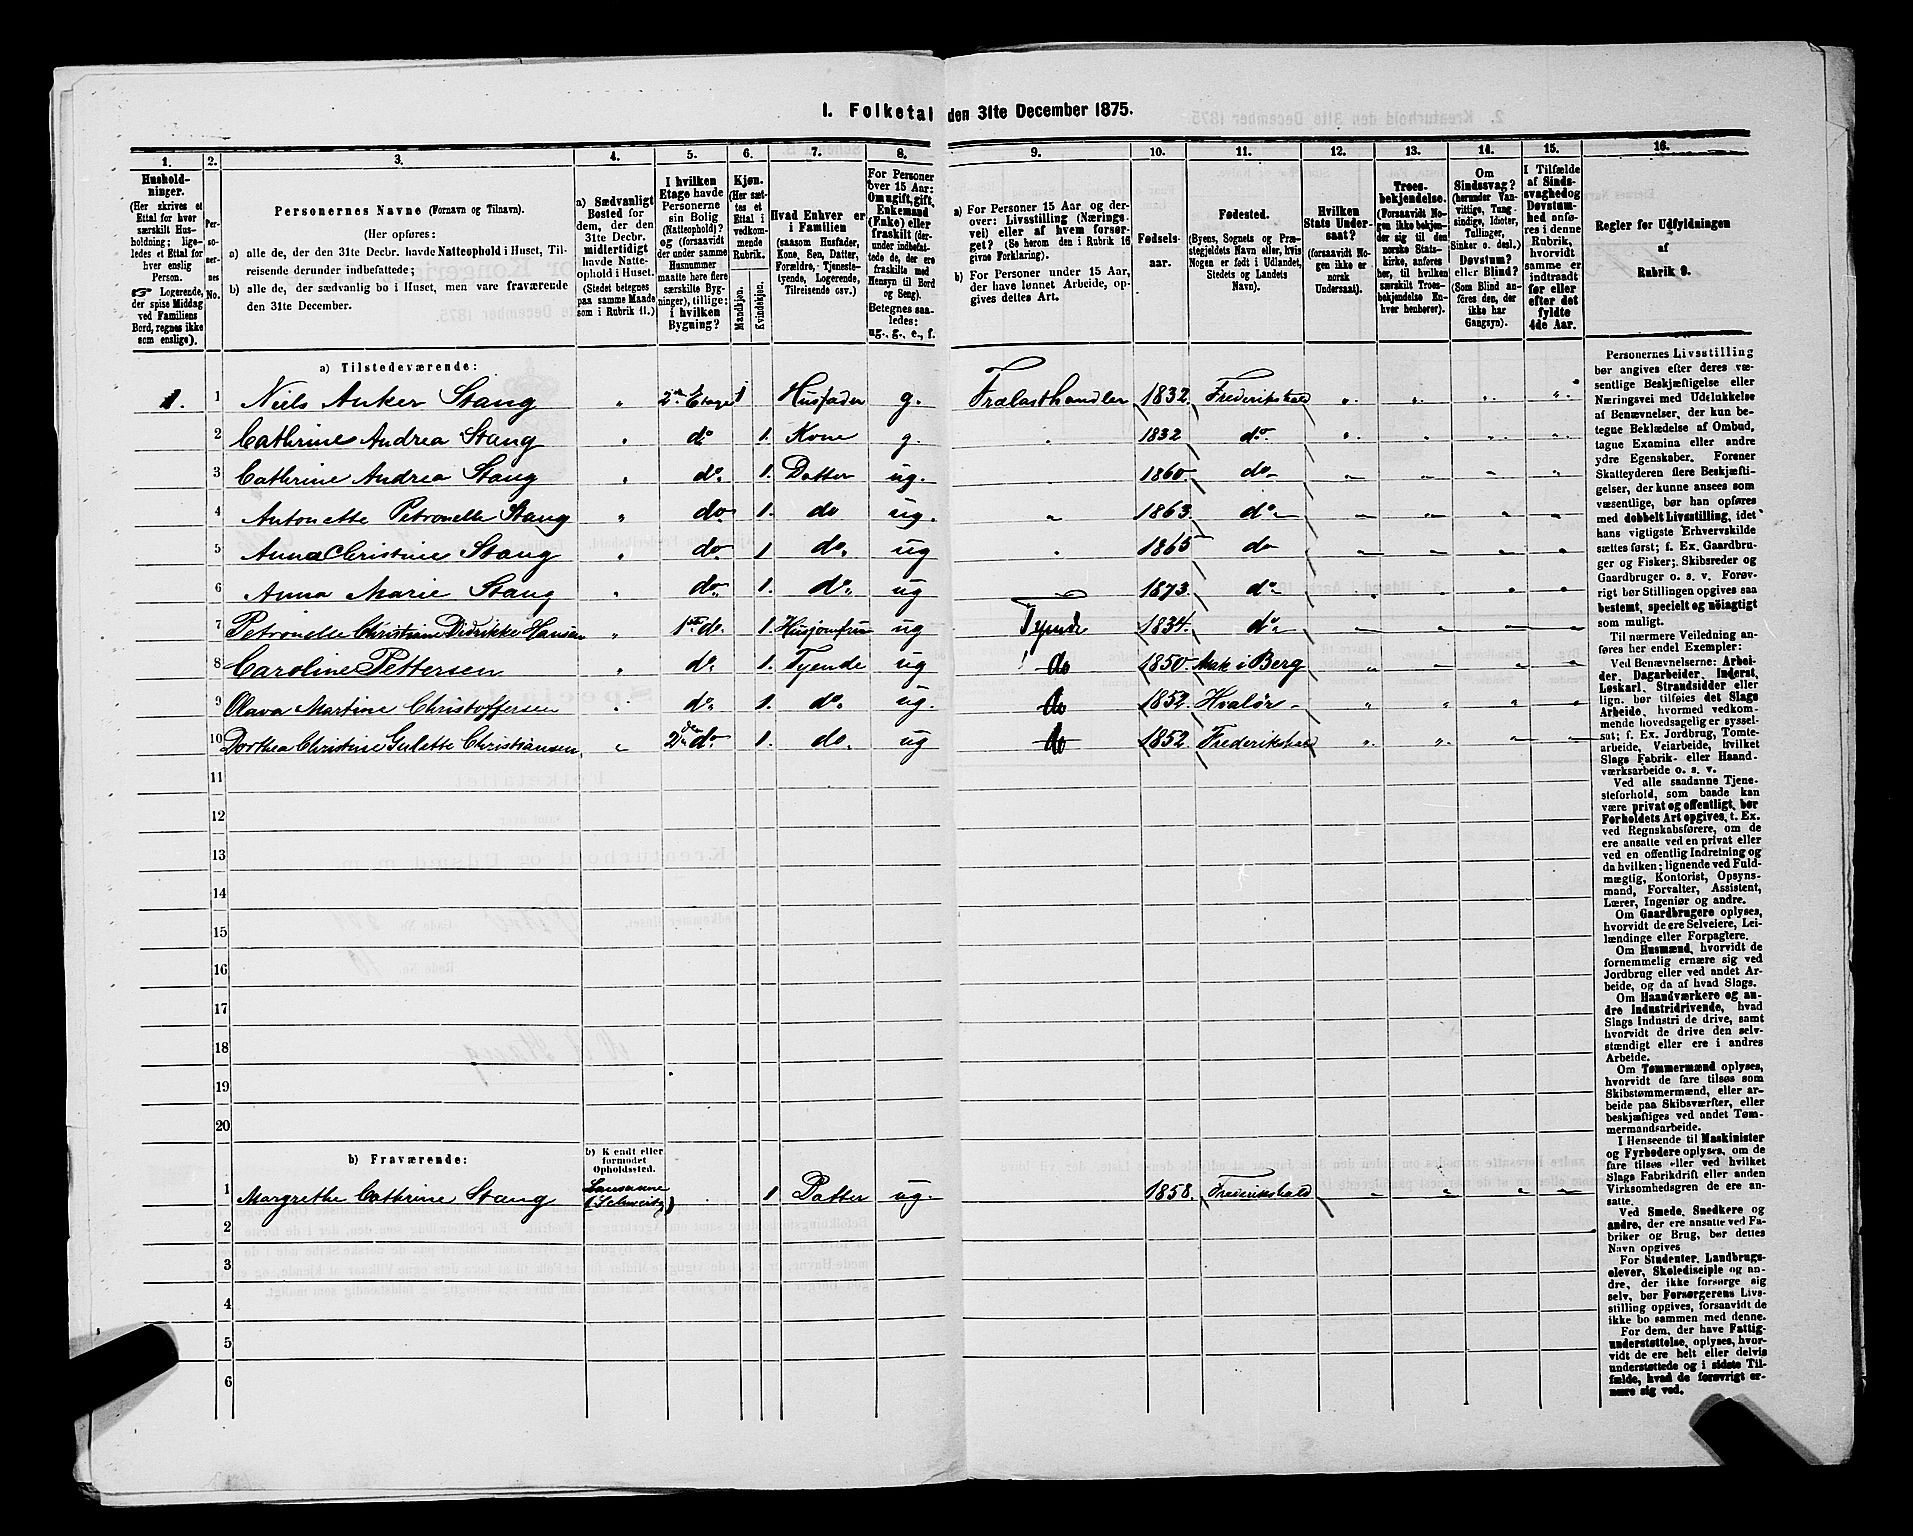 1. Folketal den 31te December 1875.
1. 2. 3. 4. 5. 6. 7. 8. 9. 10. 11. 12. 13. 14. 15. 16.
Hushold-
ninger.
(Her skrives et
Ettal for hver
særskilt Hus-
holdning; lige-
ledes et Ettal for
hver enslig
Person.
☞ Logerende,
der spise Middag
ved Familiens
Bord, regnes ikke
som enslige).
Per-
so-
ner-
nes
No.
Personernes Navne (Fornavn og Tilnavn).
(Her opføres:
a) alle de, der den 31te Decbr. havde Natteophold i Huset, Til-
reisende derunder indbefattede;
b) alle de, der sædvanlig bo i Huset, men vare fraværende
den 31te December.
a) Sædvanligt
Bosted for
dem, der den
31te Decbr.
midlertidigt
havde Natte-
ophold i Huset.
(Stedet betegnes
paa samme Maade
som i Rubrik 11.)
I hvilken
Etage havde
Personerne
sin Bolig
(Natteophold)?
og (forsaavidt
der under samme
Husnummer
særskilte Byg-
ninger), tillige:
i hvilken
Bygning?
Kjøn.
(Her sæt-
tes et
Ettal i
vedkom-
mende
Rubrik.
Mandkjøn.
Kvindekjøn.
Hvad Enhver er
i Familien
(saasom Husfader,
Kone, Søn, Datter,
Forældre, Tjeneste-
tyende, Logerende,
Tilreisende osv.)
For Personer
over 15 Aar:
Om ugift, gift,
Enkemand
(Enke) eller
fraskilt (der-
under indbefat-
tede de, der ere
fraskilte med
Hensyn til Bord
og Seng).
Betegnes saa-
ledes:
ug., g., e., f.
a) For Personer 15 Aar og der-
over: Livsstilling (Nærings-
vei) eller af hvem forsør-
get? (Se herom den i Rubrik 16
givne Forklaring).
b) For Personer under 15 Aar,
der have lønnet Arbeide, op-
gives dettes Art.
Fødsels-
aar.
Fødested.
(Byens, Sognets og Præ-
stegjeldets Navn eller, hvis
Nogen er født i Udlandet,
Stedets og Landets
Navn).
Hvilken
Stats Under-
saat?
(forsaavidt No-
gen ikke er
norsk
Undersaat).
Troes-
bekjendelse.
(Forsaavidt No-
gen ikke bekjen-
der sig til den
norske Stats-
kirke, anføres
her, til hvilken
særskilt Troes-
bekjendelse En-
hver henhører).
Om
Sindssvag?
(herunder Van-
vittige, Tung-
sindige, Idioter,
Tullinger,
Sinker o. desl.)
Døvstum?
eller Blind?
(Som Blind an-
føres den, der
ikke har
Gangsyn).
I Tilfælde
af Sinds-
svaghed og
Døvstum-
hed anfø-
res i denne
Rubrik,
hvorvidt
samme er
indtraadt
før eller
efter det
fyldte
4de Aar.
Regler for Udfyldningen
af
Rubrik 9.
a) Tilstedeværende:
1. 1 Niels Anker Stang „ 2den Etage 1 Husfader g. Trælasthandler 1832. Frederikshald
2 Cathrine Andrea Stang „ do 1. Kone g. „ 1832 do.
3 Cathrine Andrea Stang „ do. 1. Datter ug. 1860. do
4 Antonette Petronelle Stang „ do. 1. do ug. „ 1863. do
5 Anna Christine Stang „ do 1 do. ug „ 1865 do
6 Anna Marie Stang „ do. 1. do. ug 1873. do
7 Petronelle Christiane Didrikke Hansen „ 1ste do. 1. Husjomfru ug Tyende 1834. do
8 Caroline Pettersen „ do. 1. Tyende ug do 1850. Ask i Berg
9 Olava Martine Christoffersen „ do. 1. do. ug. do 1852. Hvalør
10 Dorthea Christine Gulette Christiansen „ 2den do. 1. do. ug do 1852. Frederikshald
11
12
13
14
15
16
17
18
19
20
b) Fraværende:
b) Kjendt eller
formodet
Opholdssted.
1 Margrethe Cathrine Stang Lausanne (Schweitz) 1 Datter ug. 1858. Frederikshald
2
3
4
5
6
Personernes Livsstilling
bør angives efter deres væ-
sentlige Beskjæftigelse eller
Næringsvei med Udelukkelse
af Benævnelser, der kun be-
tegne Beklædelse af Ombud,
tagne Examina eller andre
ydre Egenskaber. Forener
Skatteyderen flere Beskjæfti-
gelser, der kunne ansees som
væsentlige, bør han opføres
med dobbelt Livsstilling, idet
hans vigtigste Erhvervskilde
sættes først; f. Ex. Gaardbru-
ger og Fisker; Skibsreder og
Gaardbruger o. s. v. Forøv-
rigt bør Stillingen opgives saa
bestemt, specielt og nøiagtigt
som muligt.
Til nærmere Veiledning an-
føres her endel Exempler:
Ved Benævnelserne: Arbei-
der, Dagarbeider, Inderst,
Løskarl, Strandsidder eller
lign. bør tilføies det Slags
Arbeide, hvormed vedkom-
mende hovedsagelig er syssel-
sat; f. Ex. Jordbrug, Tomte-
arbeide, Veiarbeide, hvilket
Slags Fabrik- eller Haand-
værksarbeide o. s. v.
Ved alle saadanne Tjene-
steforhold, som baade kan
være privat og offentligt, bør
Forholdets Art opgives, t. Ex.
ved Regnskabsførere, om de
ere ansatte ved en privat eller
ved en offentlig Indretning og
da hvilken; lignende ved Fuld-
mægtig, Kontorist, Opsyns-
mand, Forvalter, Assistent,
Lærer, Ingeniør og andre.
Om Gaardbrugere oplyses,
hvorvidt de ere Selveiere, Lei-
lændinge eller Forpagtere.
Om Husmænd, hvorvidt de
fornemmelig ernære sig ved
Jordbrug eller ved andet Ar-
beide, og da af hvad Slags.
Om Haandværkere og an-
dre Industridrivende, hvad
Slags Industri de drive, samt
hvorvidt de drive den selv-
stændigt eller ere i andres
Arbeide.
Om Tømmermænd oplyses,
hvorvidt de fare tilsøs som
Skibstømmermænd, eller ar-
beide paa Skibsværfter, eller
beskjæftiges ved andet Tøm-
mermandsarbeide.
I Henseende til Maskinister
og Fyrbødere oplyses, om de
fare tilsøs eller ved hvilket
Slags Fabrikdrift eller anden
Virksomhedsgren de ere an-
satte.
Ved Smede, Snedkere og
andre, der ere ansatte ved Fa-
briker og Brug, bør dettes
Navn opgives
For Studenter, Landbrugs-
elever, Skoledisciple og an-
dre, der ikke forsørge sig
selv, bør Forsørgerens Livs-
stilling opgives, forsaavidt de
ikke bo sammen med denne.
For dem, der have Fattig-
understøttelse, oplyses, hvor-
vidt de ere helt eller delvis
understøttede og i sidste Til-
fælde, hvad de forøvrigt er-
nære sig ved.